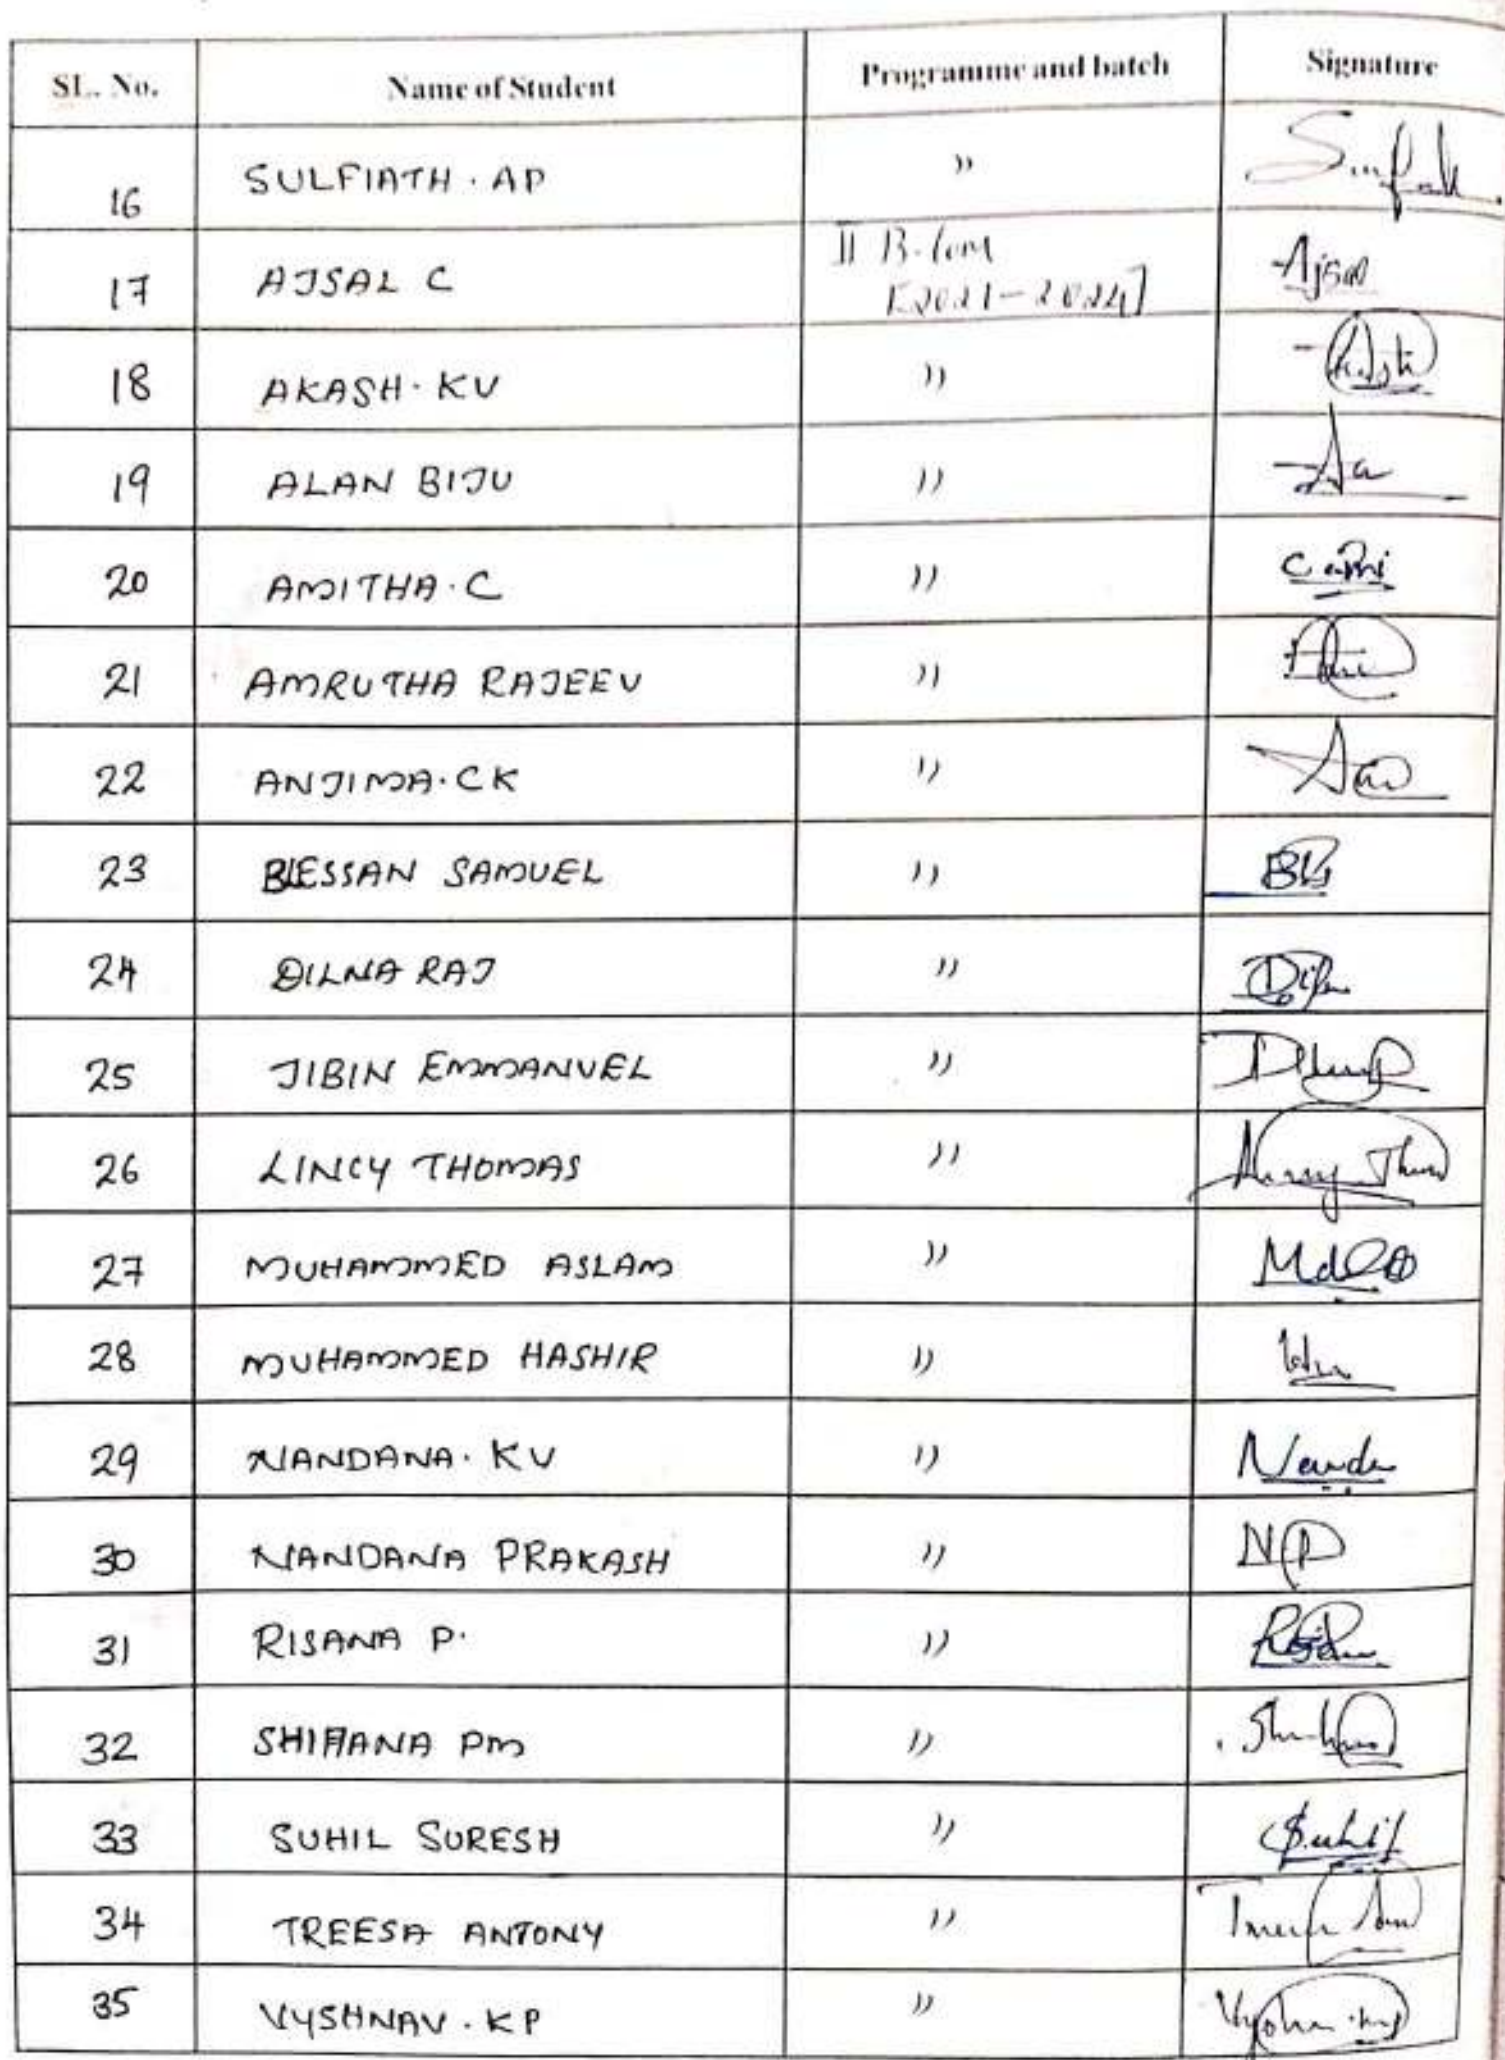 SL. No. Name of Student Programme and batch Signature
16 SULFIATH . AP "
17 AJSAL C II B.Com Ajsal
[2021-2024]
18 AKASH. KV "
19 ALAN BIJU "
20 AMITHA. C "
21 AMRUTHA RAJEEV "
22 ANJIMA. CK "
23 BLESSAN SAMUEL "
24 DILNA RAJ "
25 JIBIN EMMANUEL "
26 LINCY THOMAS "
27 MUHAMMED ASLAM "
28 MUHAMMED HASHIR "
29 NANDANA. KV "
30 NANDANA PRAKASH " NP
31 RISANA P. "
32 SHIFANA PM "
33 SUHIL SURESH " Suhil
34 TREESA ANTONY "
35 VYSHNAV. KP "